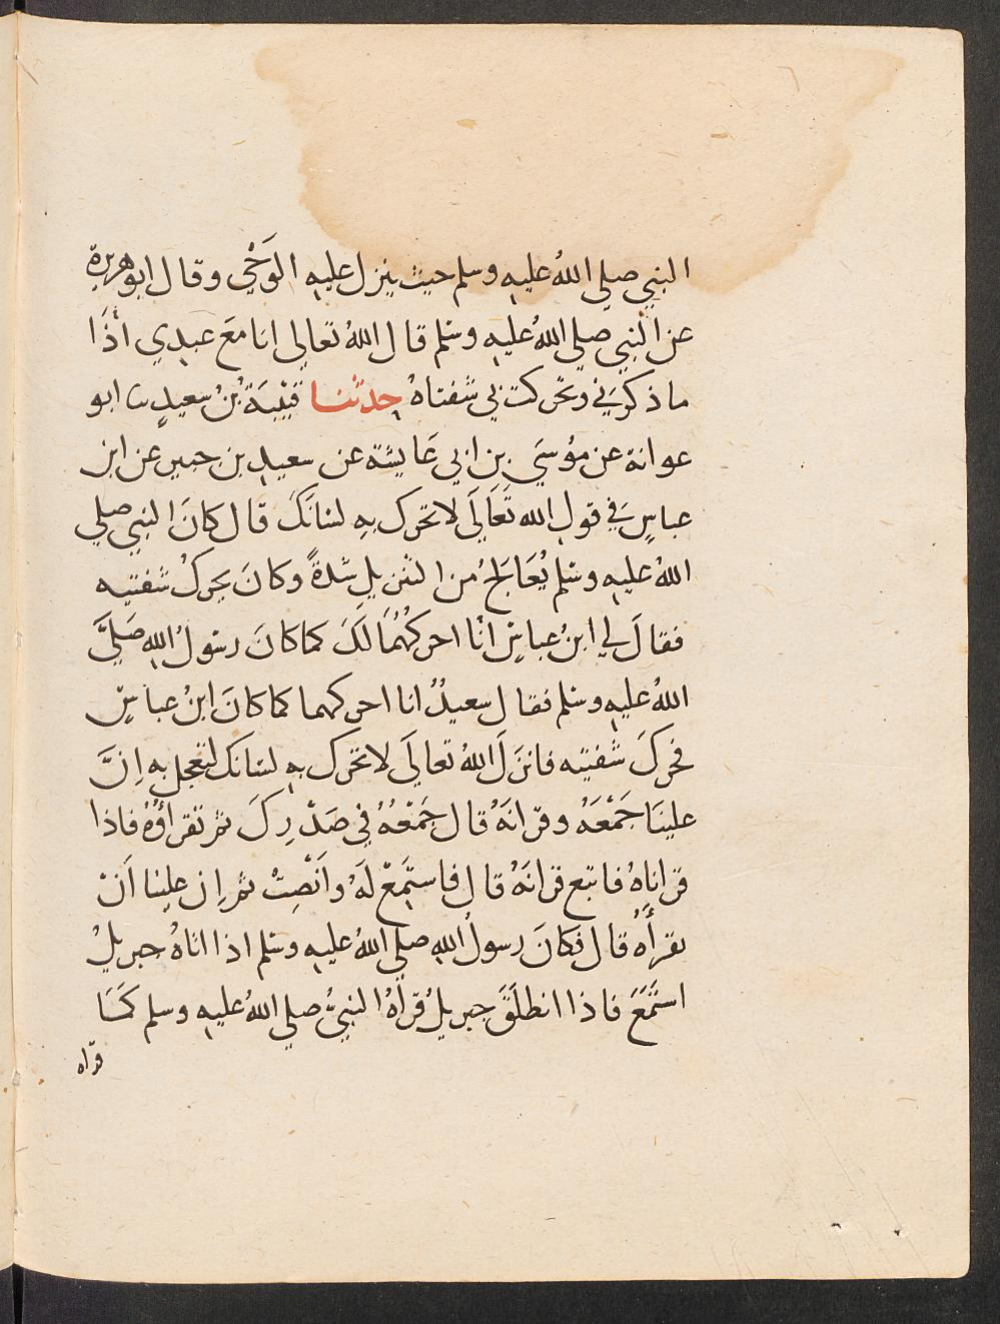 النبي صلي اللهُ عليهِ وسلم حيث ينزل عليهِ الوَحْي وقال ابوهريرة
عن النبي صلي اللهُ عليهِ وسلم قال اللهُ تعالي انا معَ عبدِي أذَا
ما ذكرَنِي وتحركت بي شفتاهُ حدثنا قتيبَة بْنُ سعيدٍ نا ابو
عوانة عن موُسَي بنِ ابي عَايشة عن سعيدِ بن جبيرٍ عن ابن
عباسٍ فِي قولِ الله تَعَالَي لا تحرك بهِ لسَانَكَ قال كانَ النبي صلي
اللهُ عليهِ وسلم يُعَالِجُ من التنزيلِ شدةً وكانَ يحركُ شفتيه
فقالَ لي ابنُ عباسٍ انَا احركهُمَا لَكَ كما كانَ رسولُ اللهِ صَلَّي
اللهُ عليهِ وسلم فقال سعيدٌ انا احركهما كما كانَ ابنُ عباسٍ
فحركَ شفتيه فانزلَ اللهُ تعالَي لا تحرك بهِ لسانك لتعجل بهِ اِنَّ
علينَا جَمْعَهُ وقرانَهُ قال جَمْعُهُ في صَدْرِكَ ثم تقراؤُهُ فاذا
قراناهُ فاتبع قرانَهُ قال فاستَمِعْ لَهُ وانْصِتْ ثم اِن علينا اَنْ
تقرأَهُ قال فكانَ رسولُ اللهِ صلي اللهُ عليهِ وسلم اذا اتاهُ جبريلُ
استَمَعَ فاذا انطلَقَ جبريلُ قرأهُ النبيُّ صلي اللهُ عليهِ وسلم كمَا
قرّاه